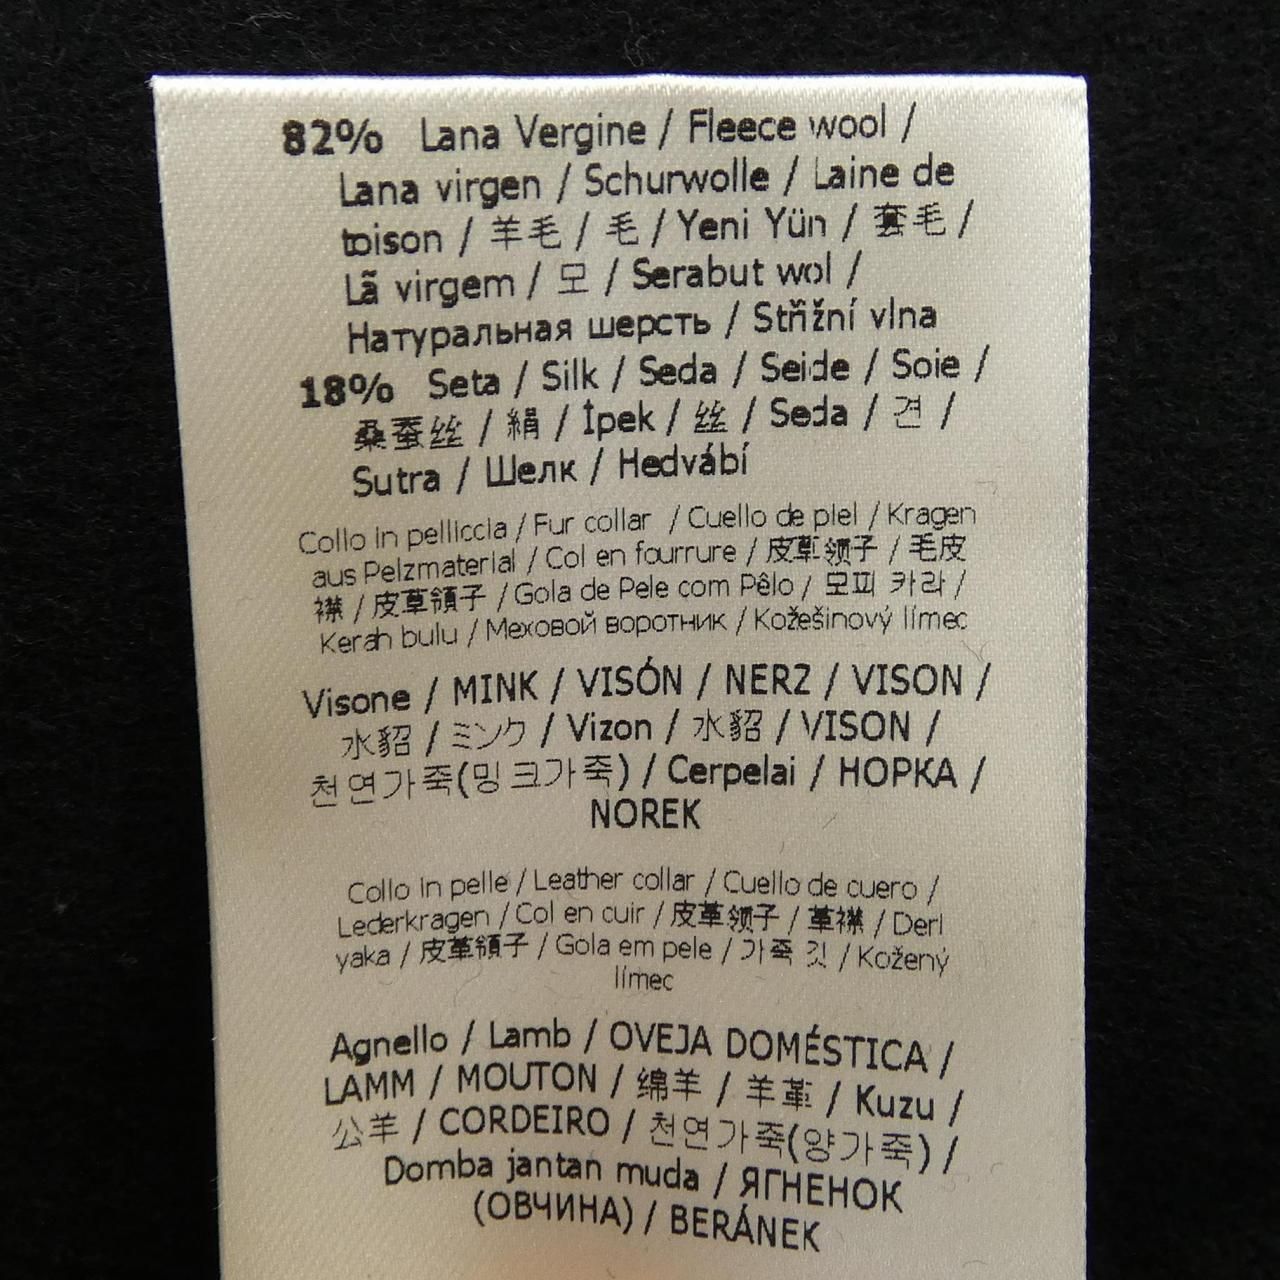 82% Lana Vergine / Fleece wool /
Lana virgen / Schurwolle / Laine de
toison / 羊毛 / 毛 / Yeni Yün / 套毛 /
Lã virgem / 모 / Serabut wol /
Натуральная шерсть / Střižní vlna
18% Seta / Silk / Seda / Seide / Soie /
桑蚕丝 / 絹 / İpek / 丝 / Seda / 견 /
Sutra / Шелк / Hedvábí
Collo in pelliccia / Fur collar / Cuello de piel / Kragen
aus Pelzmaterial / Col en fourrure / 皮草领子 / 毛皮
襟 / 皮草領子 / Gola de Pele com Pêlo / 모피 카라 /
Kerah bulu / Меховой воротник / Kožešinový límec
Visone / MINK / VISÓN / NERZ / VISON /
水貂 / ミンク / Vizon / 水貂 / VISON /
천연가죽(밍크가죽) / Cerpelai / НОРКА /
NOREK
Collo in pelle / Leather collar / Cuello de cuero /
Lederkragen / Col en cuir / 皮革领子 / 革襟 / Deri
yaka / 皮革領子 / Gola em pele / 가죽 깃 / Kožený
límec
Agnello / Lamb / OVEJA DOMÉSTICA /
LAMM / MOUTON / 绵羊 / 羊革 / Kuzu /
公羊 / CORDEIRO / 천연가죽(양가죽) /
Domba jantan muda / ЯГНЕНОК
(ОВЧИНА) / BERÁNEK